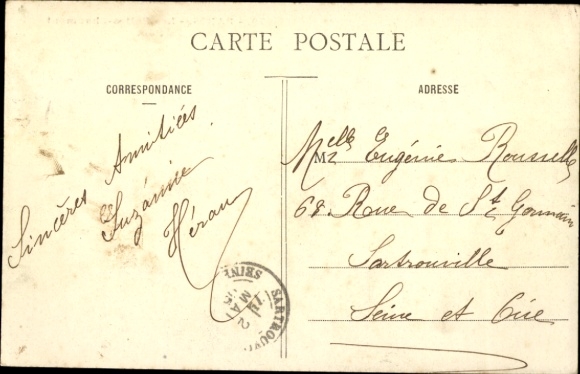 CARTE POSTALE
CORRESPONDANCE
Sincères Amitiés.
Suzanne
Héran
ADRESSE
Melle Eugénie Rousselle
68. Rue de St Germain
Sartrouville
Seine et Oise
SARTROUV
SEINE
2
MAI